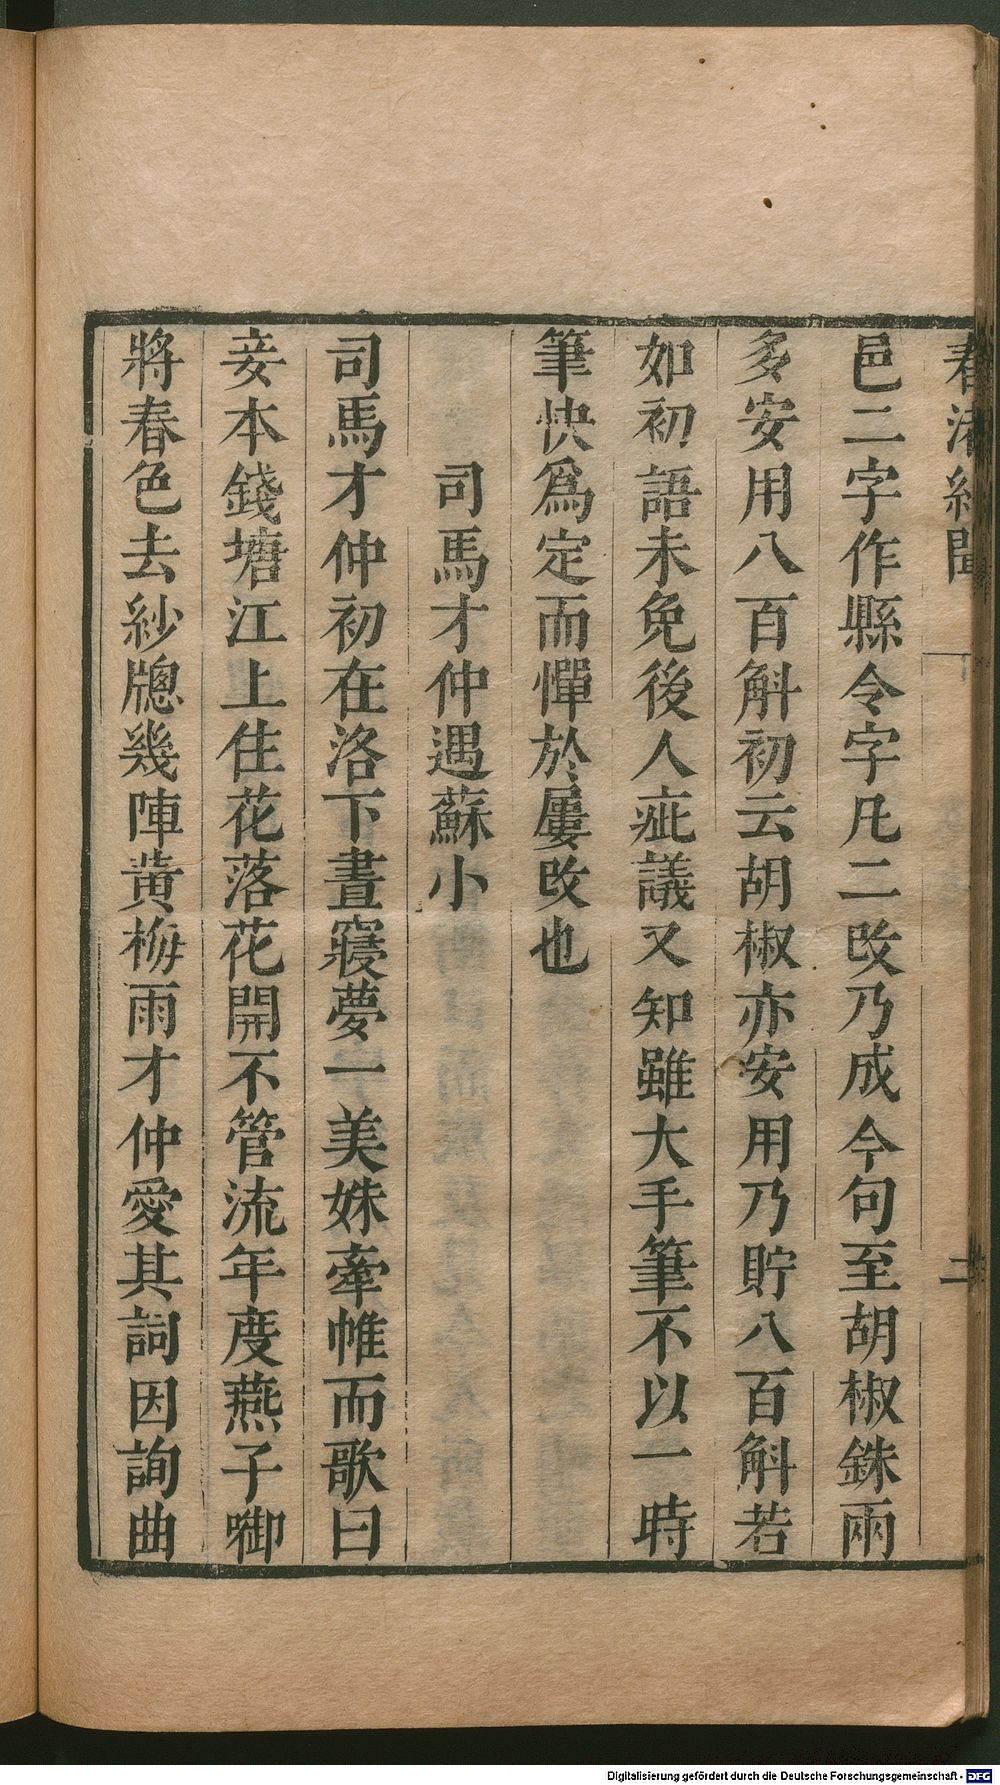 春渚紀聞
二
邑二字作縣令字凡二改乃成今句至胡椒銖兩
多安用八百斛初云胡椒亦安用乃貯八百斛若
如初語未免後人疵議又知雖大手筆不以一時
筆快爲定而憚於屢改也
司馬才仲遇蘇小
司馬才仲初在洛下晝寢夢一美姝牽帷而歌曰
妾本錢塘江上住花落花開不管流年度燕子啣
將春色去紗牕幾陣黄梅雨才仲愛其詞因詢曲
Digitalisierung gefördert durch die Deutsche Forschungsgemeinschaft - DFG